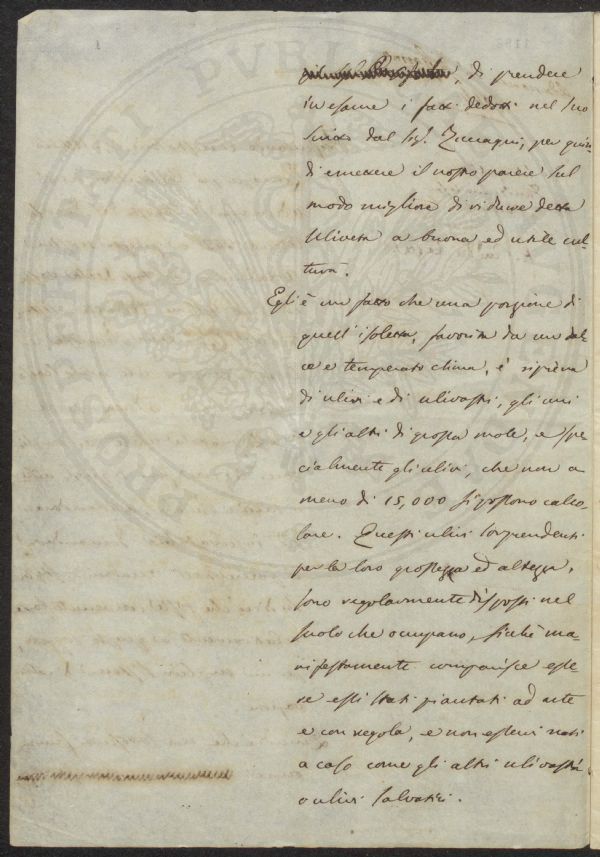 , di prendere
in esame i fatti dedotti nel suo
scritto dal Sig.r Zuccagni, per quin-
di emettere il nostro parere sul
modo migliore di ridurre detta
Uliveta a buona ed utile cul-
tura.
Egli è un fatto che una porzione di
quell'isoletta, favorita da un dol-
ce e temperato clima, è ripiena
di ulivi e di ulivastri, gli uni
e gli altri di grossa mole, e spe-
cialmente gli ulivi, che non a
meno di 15,000 si possono calco-
lare. Questi ulivi sorprendenti
per la loro grossezza ed altezza,
sono regolarmente disposti nel
suolo che occupano, sichè ma-
nifestamente comparisce esse-
re essi stati piantati ad arte
e con regola, e non esservi nati
a caso come gli altri ulivastri
o ulivi salvatici.